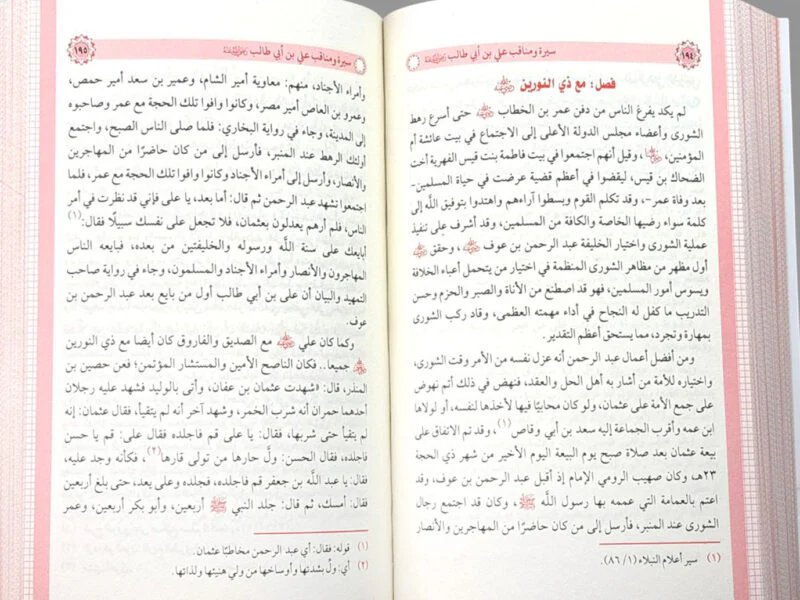 ١٩٤
سيرة ومناقب علي بن أبي طالب رضي الله عنه
فصل: مع ذي النورين رضي الله عنه
لم يكد يفرغ الناس من دفن عمر بن الخطاب رضي الله عنه حتى أسرع رهط
الشورى وأعضاء مجلس الدولة الأعلى إلى الاجتماع في بيت عائشة أم
المؤمنين، وقيل أنهم اجتمعوا في بيت فاطمة بنت قيس الفهرية أخت
الضحاك بن قيس، ليقضوا في أعظم قضية عرضت في حياة المسلمين-
بعد وفاة عمر-، وقد تكلم القوم وبسطوا آراءهم واهتدوا بتوفيق اللَّه إلى
كلمة سواء رضيها الخاصة والكافة من المسلمين، وقد أشرف على تنفيذ
عملية الشورى واختيار الخليفة عبد الرحمن بن عوف رضي الله عنه، وحقق
أول مظهر من مظاهر الشورى المنظمة في اختيار من يتحمل أعباء الخلافة
ويسوس أمور المسلمين، فهو قد اصطنع من الأناة والصبر والحزم وحسن
التدريب ما كفل له النجاح في أداء مهمته العظمى، وقاد ركب الشورى
بمهارة وتجرد، مما يستحق أعظم التقدير.
ومن أفضل أعمال عبد الرحمن أنه عزل نفسه من الأمر وقت الشورى،
واختياره للأمة من أشار به أهل الحل والعقد، فنهض في ذلك أتم نهوض
على جمع الأمة على عثمان، ولو كان محابيًا فيها لأخذها لنفسه، أو لولاها
ابن عمه وأقرب الجماعة إليه سعد بن أبي وقاص(١)، وقد تم الاتفاق على
بيعة عثمان بعد صلاة صبح يوم البيعة اليوم الأخير من شهر ذي الحجة
٢٣هـ، وكان صهيب الرومي الإمام إذ أقبل عبد الرحمن بن عوف، وقد
اعتم بالعمامة التي عممه بها رسول اللَّه ﷺ، وكان قد اجتمع رجال
الشورى عند المنبر، فأرسل إلى من كان حاضرًا من المهاجرين والأنصار
(١) سير أعلام النبلاء (٨٦/١).
سيرة ومناقب علي بن أبي طالب رضي الله عنه
١٩٥
وأمراء الأجناد، منهم: معاوية أمير الشام، وعمير بن سعد أمير حمص،
وعمرو بن العاص أمير مصر، وكانوا وافوا تلك الحجة مع عمر وصاحبوه
إلى المدينة، وجاء في رواية البخاري: فلما صلى الناس الصبح، واجتمع
أولئك الرهط عند المنبر، فأرسل إلى من كان حاضرًا من المهاجرين
والأنصار، وأرسل إلى أمراء الأجناد وكانوا وافوا تلك الحجة مع عمر، فلما
اجتمعوا تشهد عبد الرحمن ثم قال: أما بعد، يا علي فإني قد نظرت في أمر
الناس، فلم أرهم يعدلون بعثمان، فلا تجعل على نفسك سبيلًا فقال:(١)
أبايعك على سنة اللَّه ورسوله والخليفتين من بعده، فبايعه الناس
المهاجرون والأنصار وأمراء الأجناد والمسلمون، وجاء في رواية صاحب
التمهيد والبيان أن على بن أبي طالب أول من بايع بعد عبد الرحمن بن
عوف.
وكما كان علي رضي الله عنه مع الصديق والفاروق كان أيضا مع ذي النورين
جميعا.. فكان الناصح الأمين والمستشار المؤتمن؛ فعن حصين بن
المنذر، قال: «شهدت عثمان بن عفان، وأتى بالوليد فشهد عليه رجلان
أحدهما حمران أنه شرب الخمر، وشهد آخر أنه لم يتقيأ، فقال عثمان: إنه
لم يتقيأ حتى شربها، فقال: يا على قم فاجلده فقال على: قم يا حسن
فاجلده، فقال الحسن: ولّ حارها من تولى قارها(٢)، فكأنه وجد عليه،
فقال: يا عبد اللَّه بن جعفر قم فاجلده، فجلده وعلى يعد، حتى بلغ أربعين
فقال: أمسك، ثم قال: جلد النبي ﷺ أربعين، وأبو بكر أربعين، وعمر
(١) قوله: فقال: أي عبد الرحمن مخاطبًا عثمان.
(٢) أي: ولّ بشدتها وأوساخها من ولي هنيئها ولذاتها.